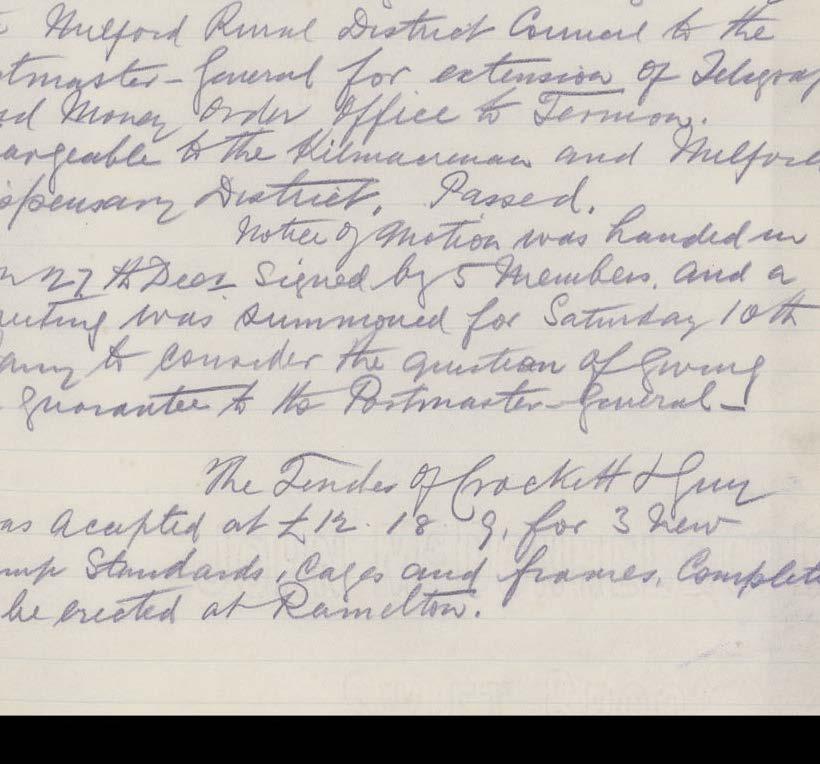 Milford Rural District Council to the
tmaster-General for extension of Telegrap
nd Money Order Office to Termon.
argeable to the Kilmacrenan and Milford
spensary District. Passed.
Notice of Motion was handed in
n 27th Decr signed by 5 Members, and a
eeting was summoned for Saturday 10th
any to consider the question of Giving
guarantee to the Postmaster-General-
The Tender of Crockett & Guy
as accepted at £12. 18 9, for 3 New
mp Standards, Cages and frames, Complete
be erected at Ramelton.